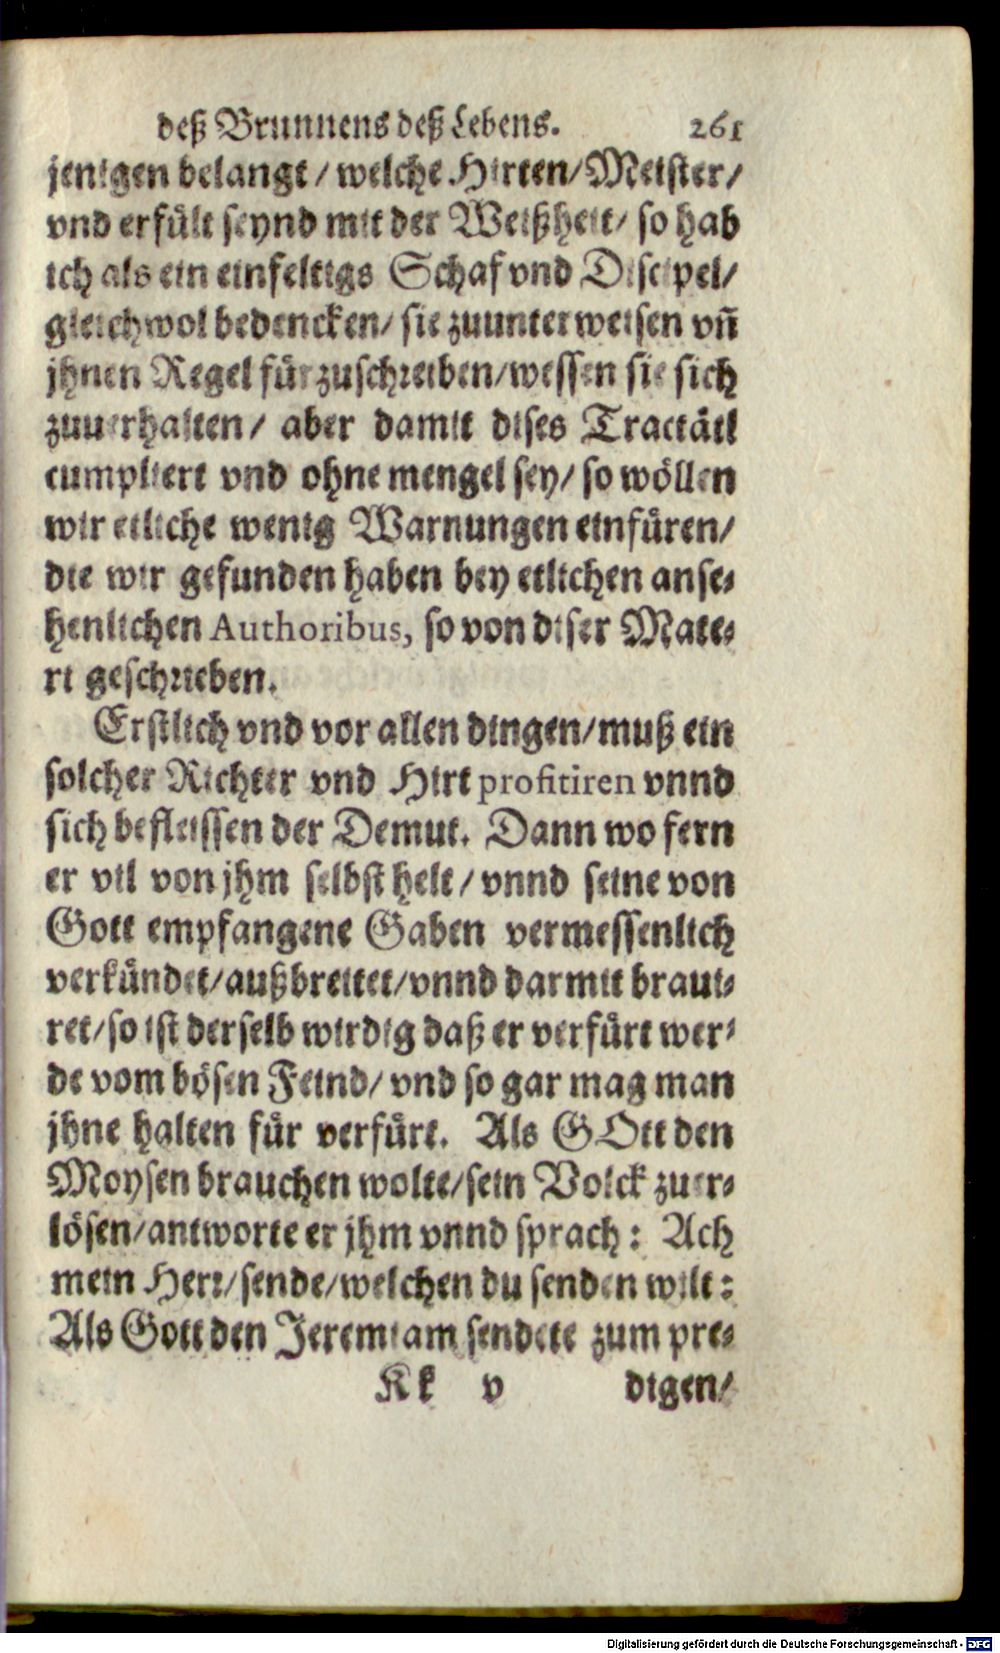 deß Brunnens deß Lebens. 261
jenigen belangt / welche Hirten/Meister/
vnd erfült seynd mit der Weißheit/ so hab
ich als ein einfeltigs Schaf vnd Discipel/
gleichwol bedencken/ sie zuunterweisen vñ
jhnen Regel fürzuschreiben/wessen sie sich
zuuerhalten/ aber damit dises Tractätl
cumpliert vnd ohne mengel sey/ so wöllen
wir etliche wenig Warnungen einfüren/
die wir gefunden haben bey etlichen anse-
henlichen Authoribus, so von diser Mate-
ri geschrieben.
Erstlich vnd vor allen dingen/muß ein
solcher Richter vnd Hirt profitiren vnnd
sich befleissen der Demut. Dann wo fern
er vil von jhm selbst helt/ vnnd seine von
Gott empfangene Gaben vermessenlich
verkündet/außbreitet/vnnd darmit braui-
ret/so ist derselb wirdig daß er verfürt wer-
de vom bösen Feind/ vnd so gar mag man
jhne halten für verfürt. Als GOtt den
Moysen brauchen wolte/sein Volck zuer-
lösen/antworte er jhm vnnd sprach: Ach
mein Herr/sende/welchen du senden wilt:
Als Gott den Jeremiam sendete zum pre-
Kk v digen/
Digitalisierung gefördert durch die Deutsche Forschungsgemeinschaft - DFG